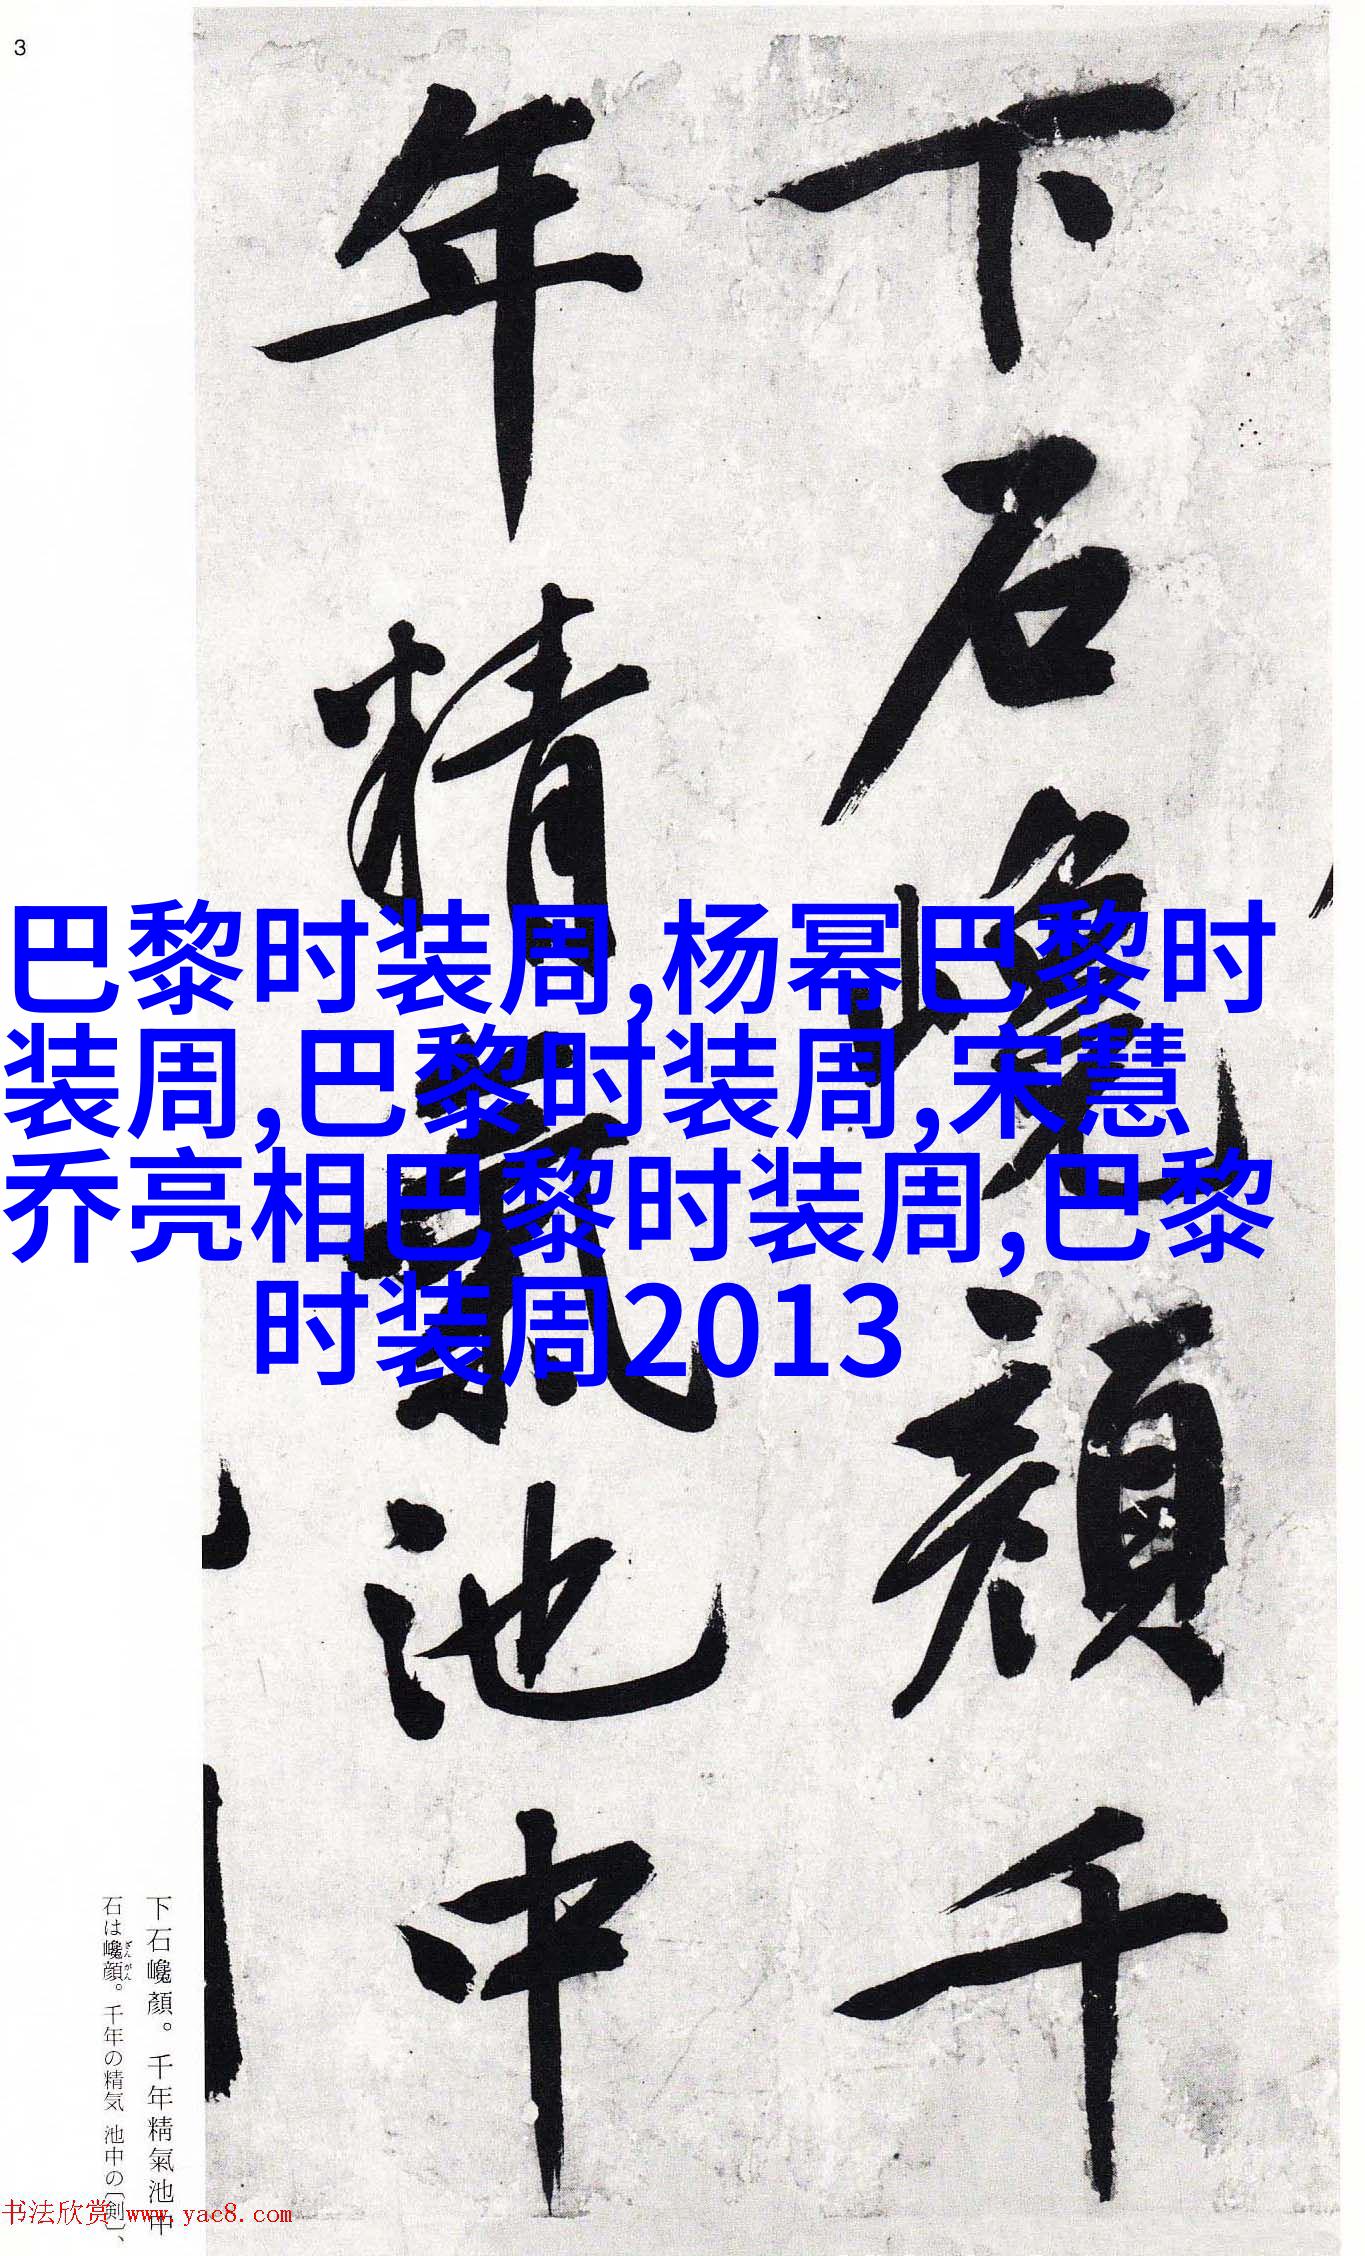 3
下石巉顏千
年精氣池中
巴黎时装周,杨幂巴黎时
装周,巴黎时装周,宋慧
乔亮相巴黎时装周,巴黎
时装周2013
下石巉顏。千年精氣池中
石は巉顔。千年の精気 池中の〔剣〕、
ざんがん
书法欣赏 www.yac8.com